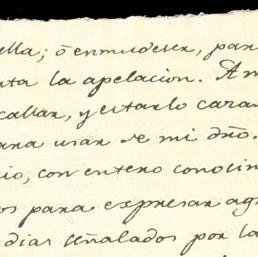 ella; ó enmudecer, par
ta la apelacion. Am
callar, y estarlo caran
ara usar de mi dro.
io, con entero conocim
os para expresar ag
dias señalados por la